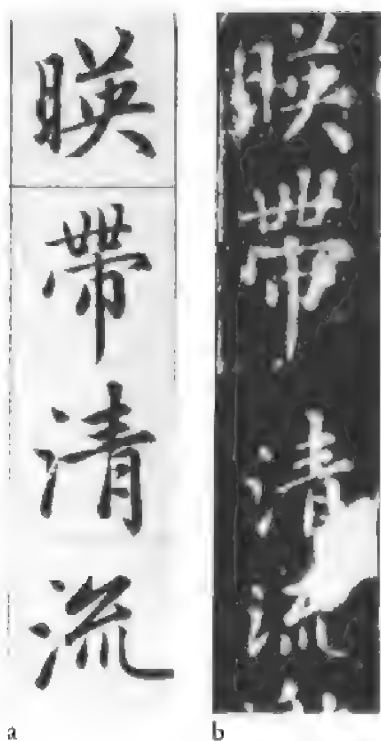 暎帶清流
暎帶清流
a
b